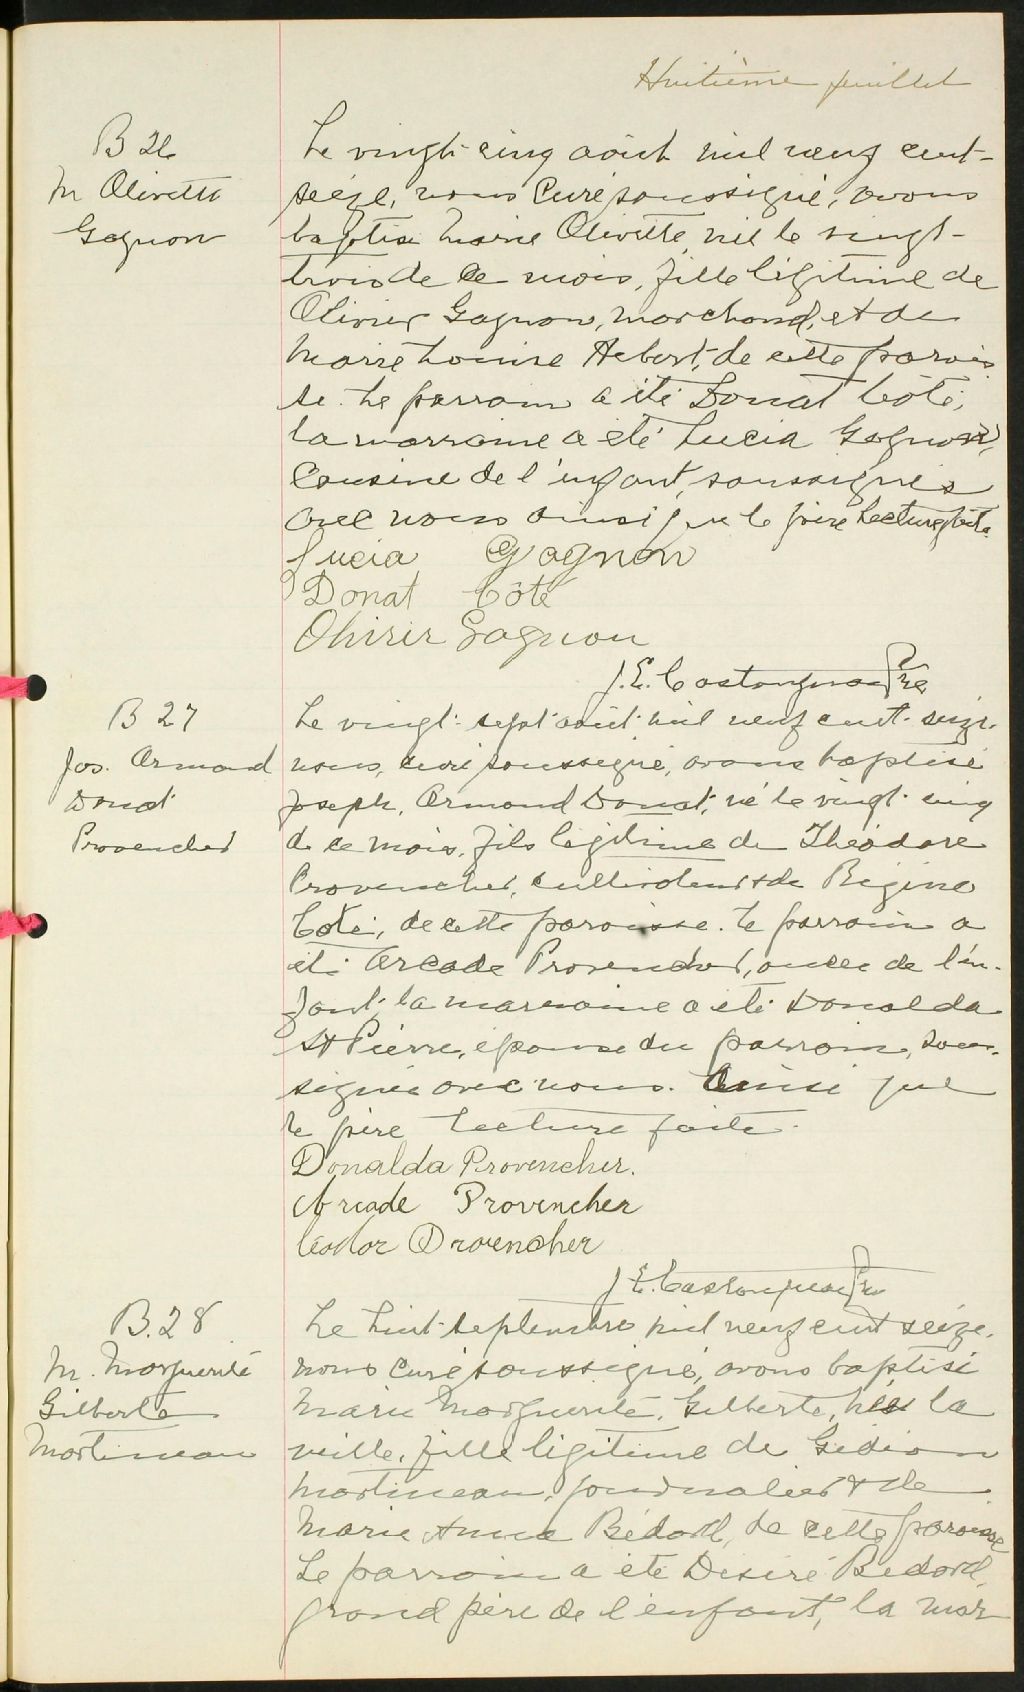 Huitième feuillet
B 26
M Olivette
Gagnon
Le vingt-cinq août mil neuf cent-
seize, nous Curé soussigné, avons
baptisé Marie Olivette, née le vingt-
trois de ce mois, fille légitime de
Olivier Gagnon, marchand, et de
Marie Louise Hebert, de cette parois
se. Le parrain a été Donat Coté,
la marraine a été Lucia Gagnon,
Cousine de l'enfant, soussignés
avec nous ainsi que le père Lecture faite.
Lucia Gagnon
Donat Côté
Olivier Gagnon
J. E. Castonguay Ptre
B 27
Jos. Armand
Donat
Provencher
Le vingt-sept août mil neuf cent-seize,
nous, curé soussigné, avons baptisé
Joseph, Armand Donat, né le vingt-cinq
de ce mois, fils légitime de Théodore
Provencher, cultivateur & de Régina
Coté, de cette paroisse. Le parrain a
été Arcade Provencher, oncle de l'en-
fant, la marraine a été Donalda
St Pierre, épouse du parrain, sous-
signés avec nous. Ainsi que
le père Lecture faite.
Donalda Provencher.
Arcade Provencher
Provencher
J. E. Castonguay Ptre
B. 28
M. Marguerite
Gilberte
Martineau
Le huit septembre mil neuf cent seize.
nous curé soussigné, avons baptisé
Marie Marguerite, Gilberte, née la
veille, fille légitime de Gédéon
Martineau, journalier & de
Marie Anna Bédard, de cette paroisse
Le parrain a été Désiré Bédard,
grand père de l'enfant, la mar